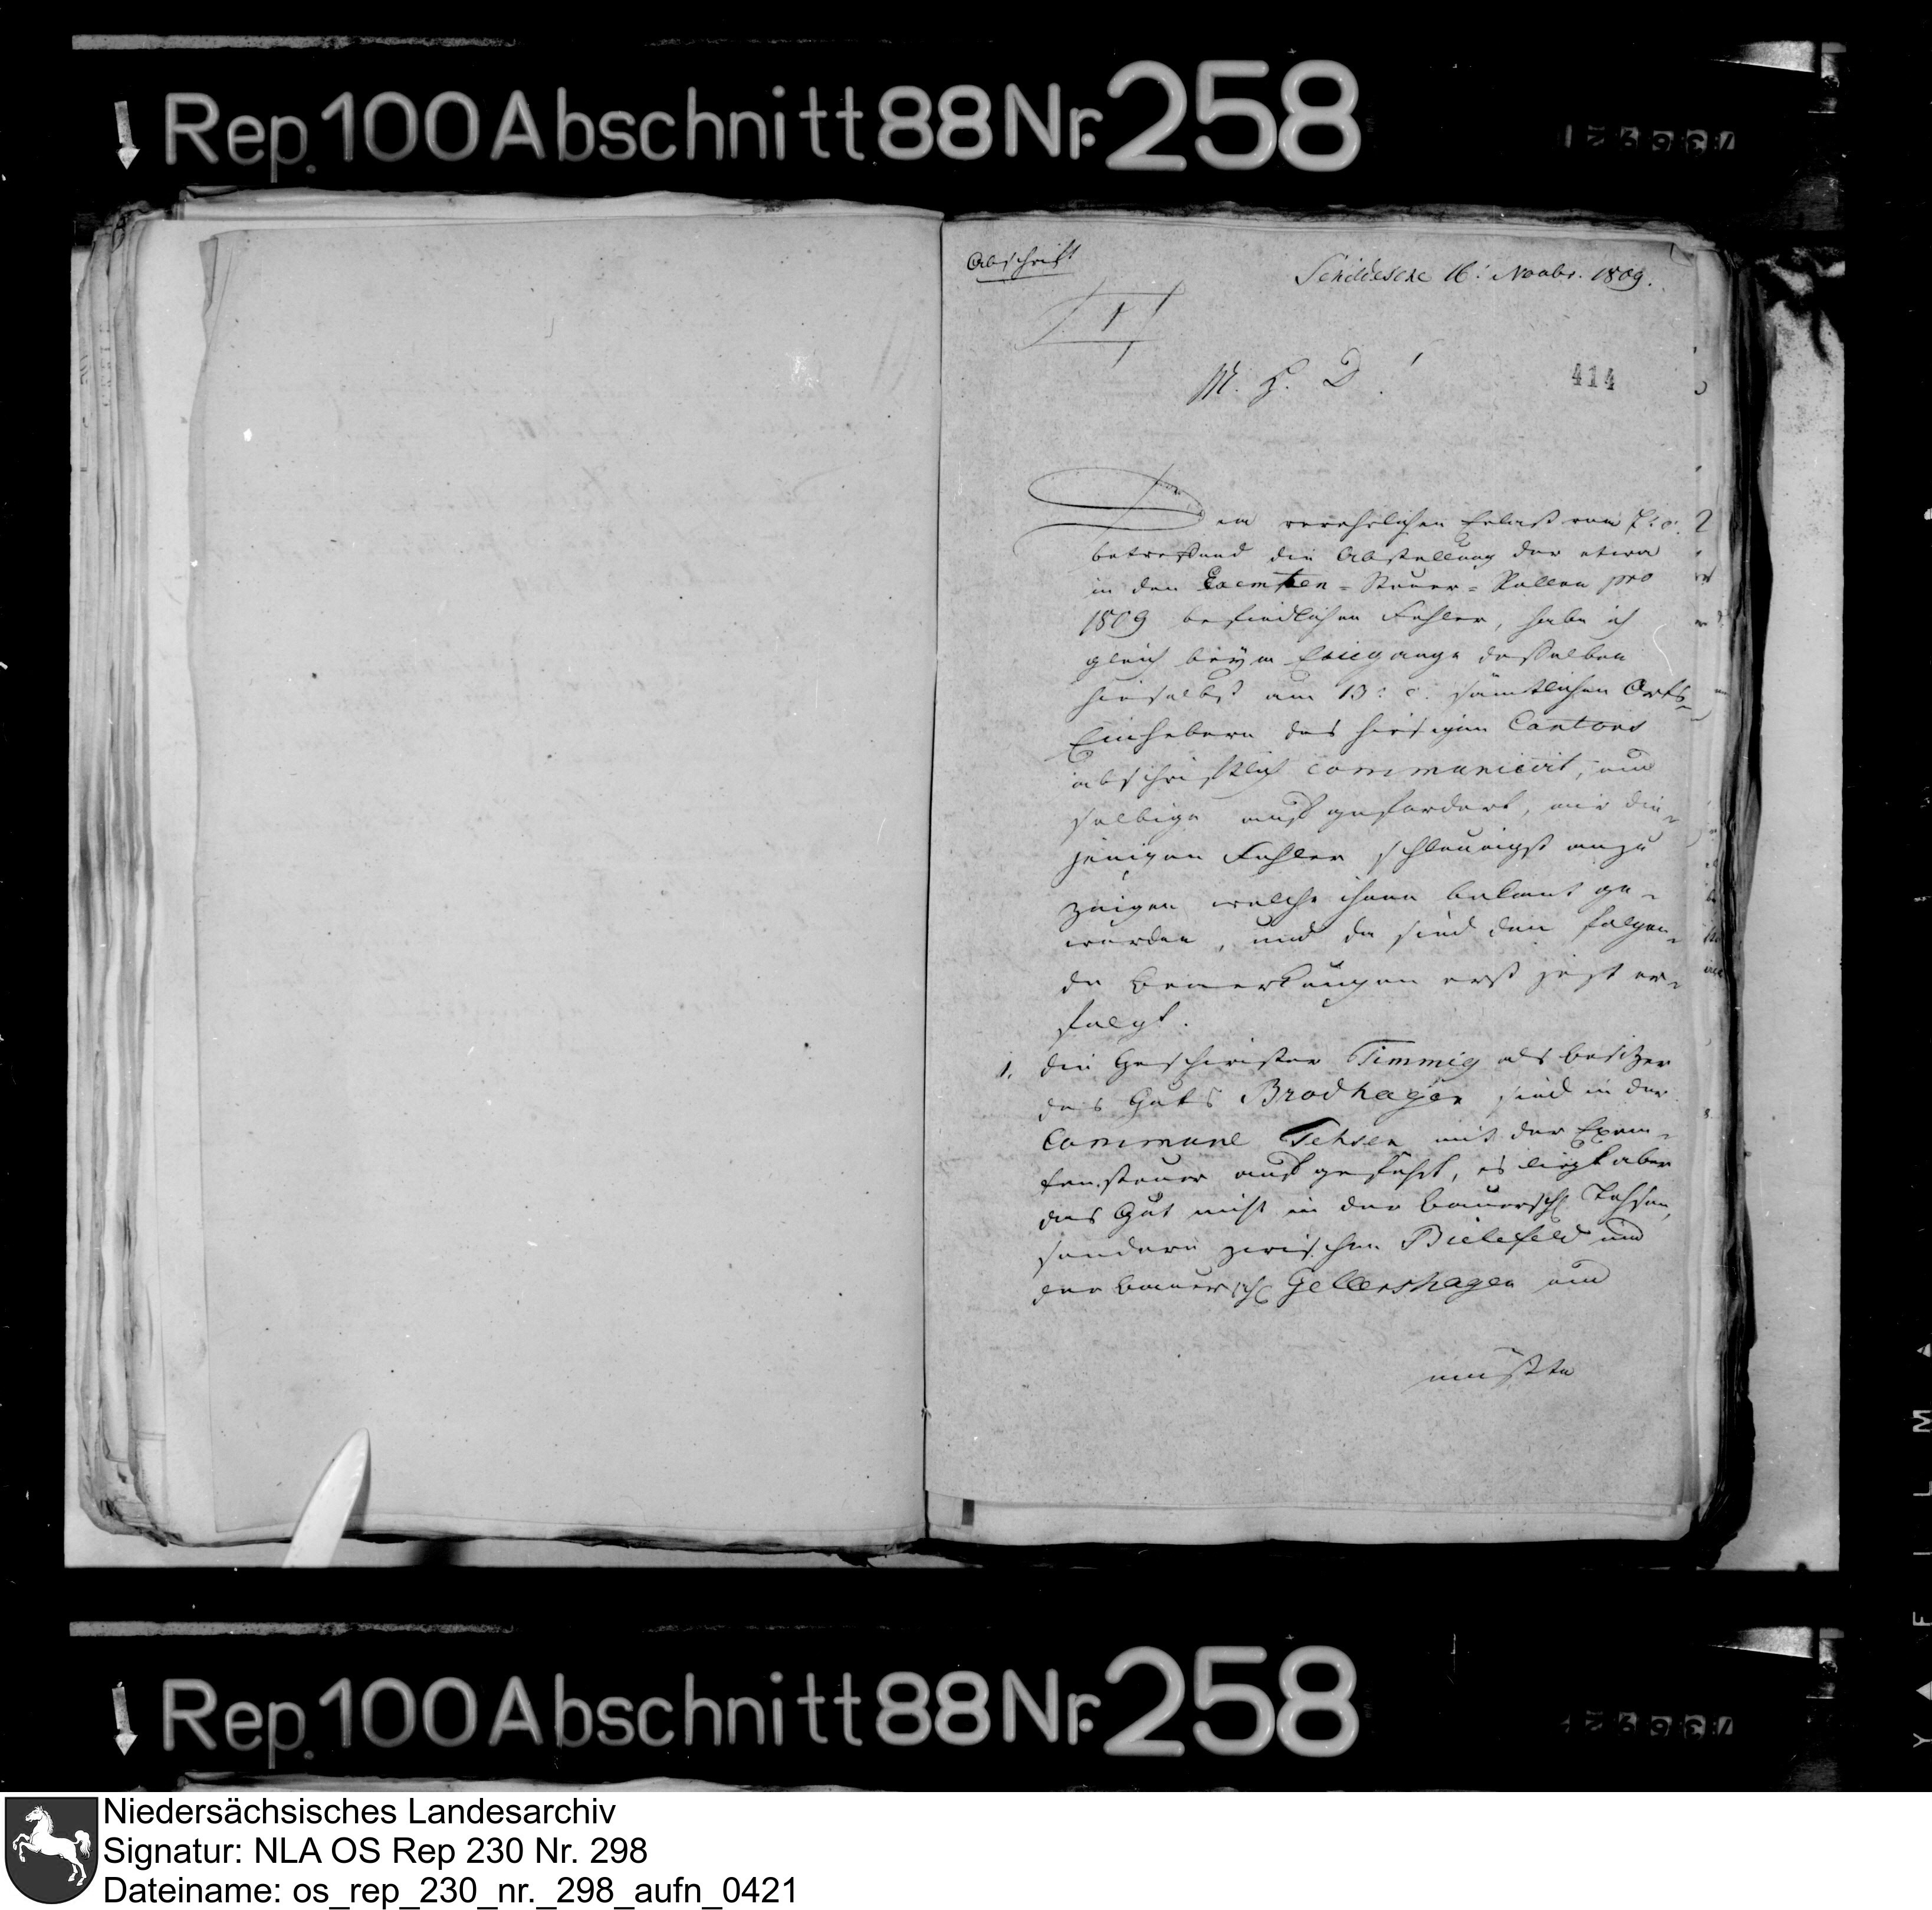 Rep. 100 Abschnitt 88 Nr. 258
Abschrift
Schildesche 16: Novbr. 1809.
M. H. D!
414
Dem verehrlichen Erlaß vom 7: c:
betreffend die Abstellung der etwa
in den Exemten-Steuer-Rollen pro
1809 befindlichen Fehler, habe ich
gleich beym Eingange desselben
hieselbst am 13: c. sämtlichen Orts-
Einhebern des hiesigen Cantons
abschriftlich communicirt, und
selbige aufgefordert, mir die-
jenigen Fehler schleunigst anzu
zeigen welche ihnen bekant ge-
worden, und da sind den folgen-
de Bemerkungen erst jezt er-
folgt.
1. die Geschwister Timmig als Besitzer
des Guts Brodhagen sind in der
Commune Tehsen mit der Exem-
tensteuer aufgeführt, es liegt aber
das Gut nicht in der Bauersch Tehsen,
sondern zwischen Bielefeld und
der Bauersch Gellershagen und
müßte
Rep. 100 Abschnitt 88 Nr. 258
Niedersächsisches Landesarchiv
Signatur: NLA OS Rep 230 Nr. 298
Dateiname: os_rep_230_nr._298_aufn_0421